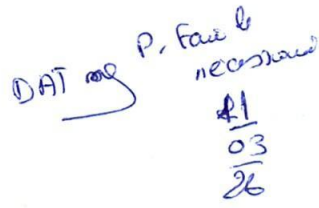 DAT
P. Faire le
nécessaire
21
03
26